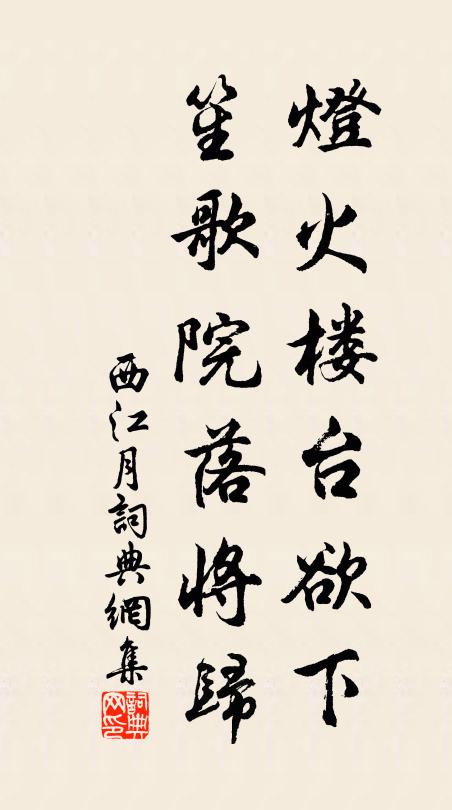 燈火楼台欲下
笙歌院落將歸
西江月詞典網集
詞典
网印